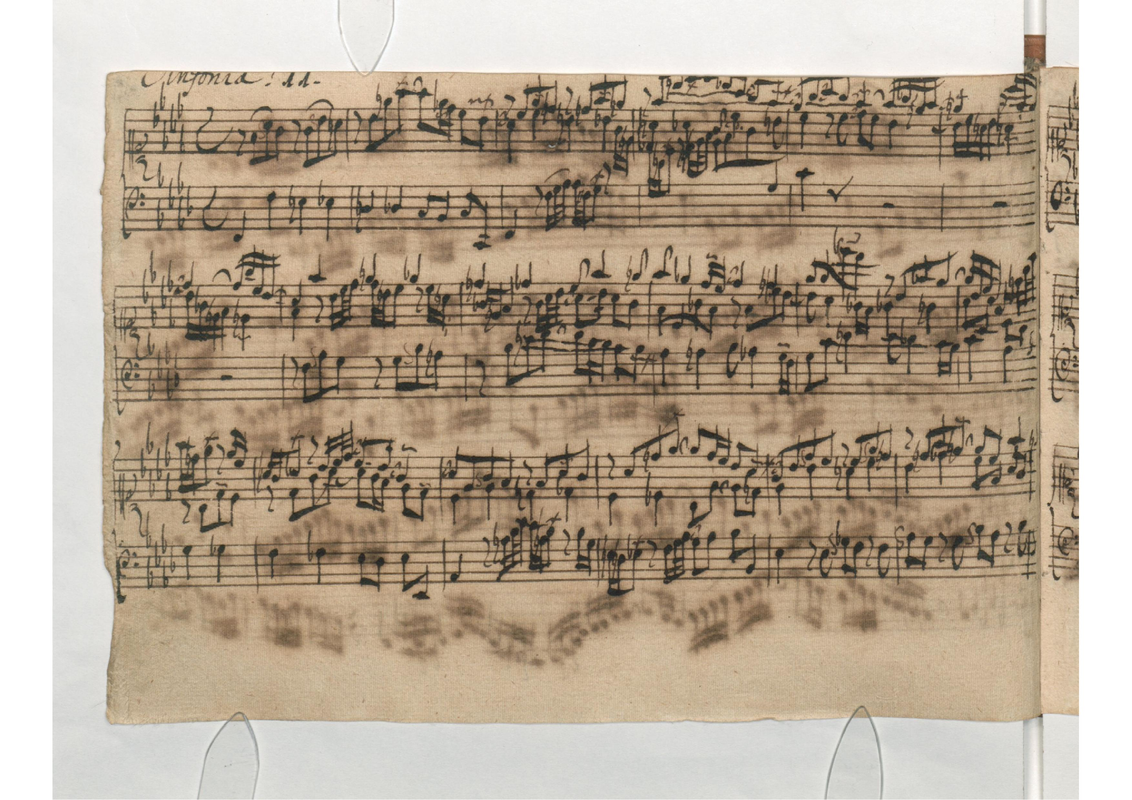 Sinfonia. 11.